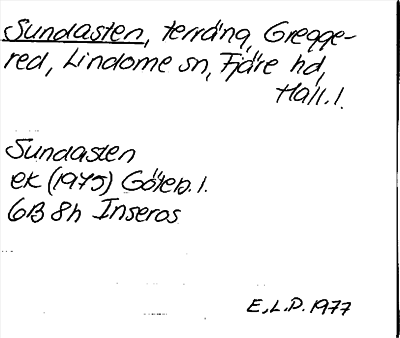 Sundasten, terräng, Gregge-
red, Lindome sn, Fjäre hd,
Hall. l.
Sundasten
ek (1975) Göteb. l.
6B 8h Inseros
E.L.P. 1977